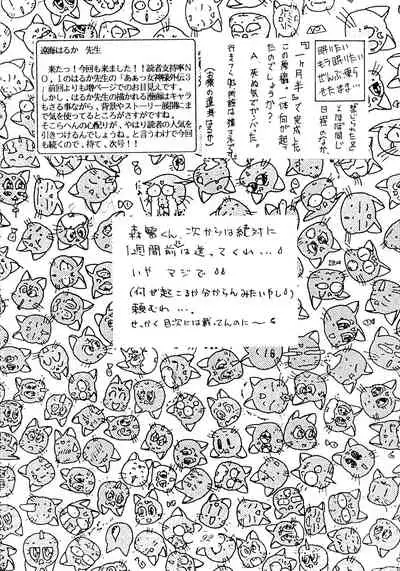 遠海はるか 先生
来たっ!今回も来ました!!読者支持率N
O.1のはるか先生の「ああっ女神様外伝3
」前回よりも増ページでのお目見えです。
しかし、はるか先生の描かれる漫画はキャラ
もさる事ながら、背景やストーリー展開にま
で気を使ってるところがさすがですね。
そこらへんの心配りが、やはり読者の人気を
引きつけるんでしょうね。と言うわけで今回
も続くので、待て、次号!!
『一ヶ月半』で完成した
この原稿。一体何が起っ
たのでしょうか?
A. 死ぬ気でかいた。
眠りたい
もう眠りたい
ぜんぶ
日程のなか
森賢くん、次からは絶対に
1週間前には送ってくれ…
いや マジで
(何ぜ起こるか分からんみたいやし)
頼むれ…。
せっかく目次には載ってんのに〜
92